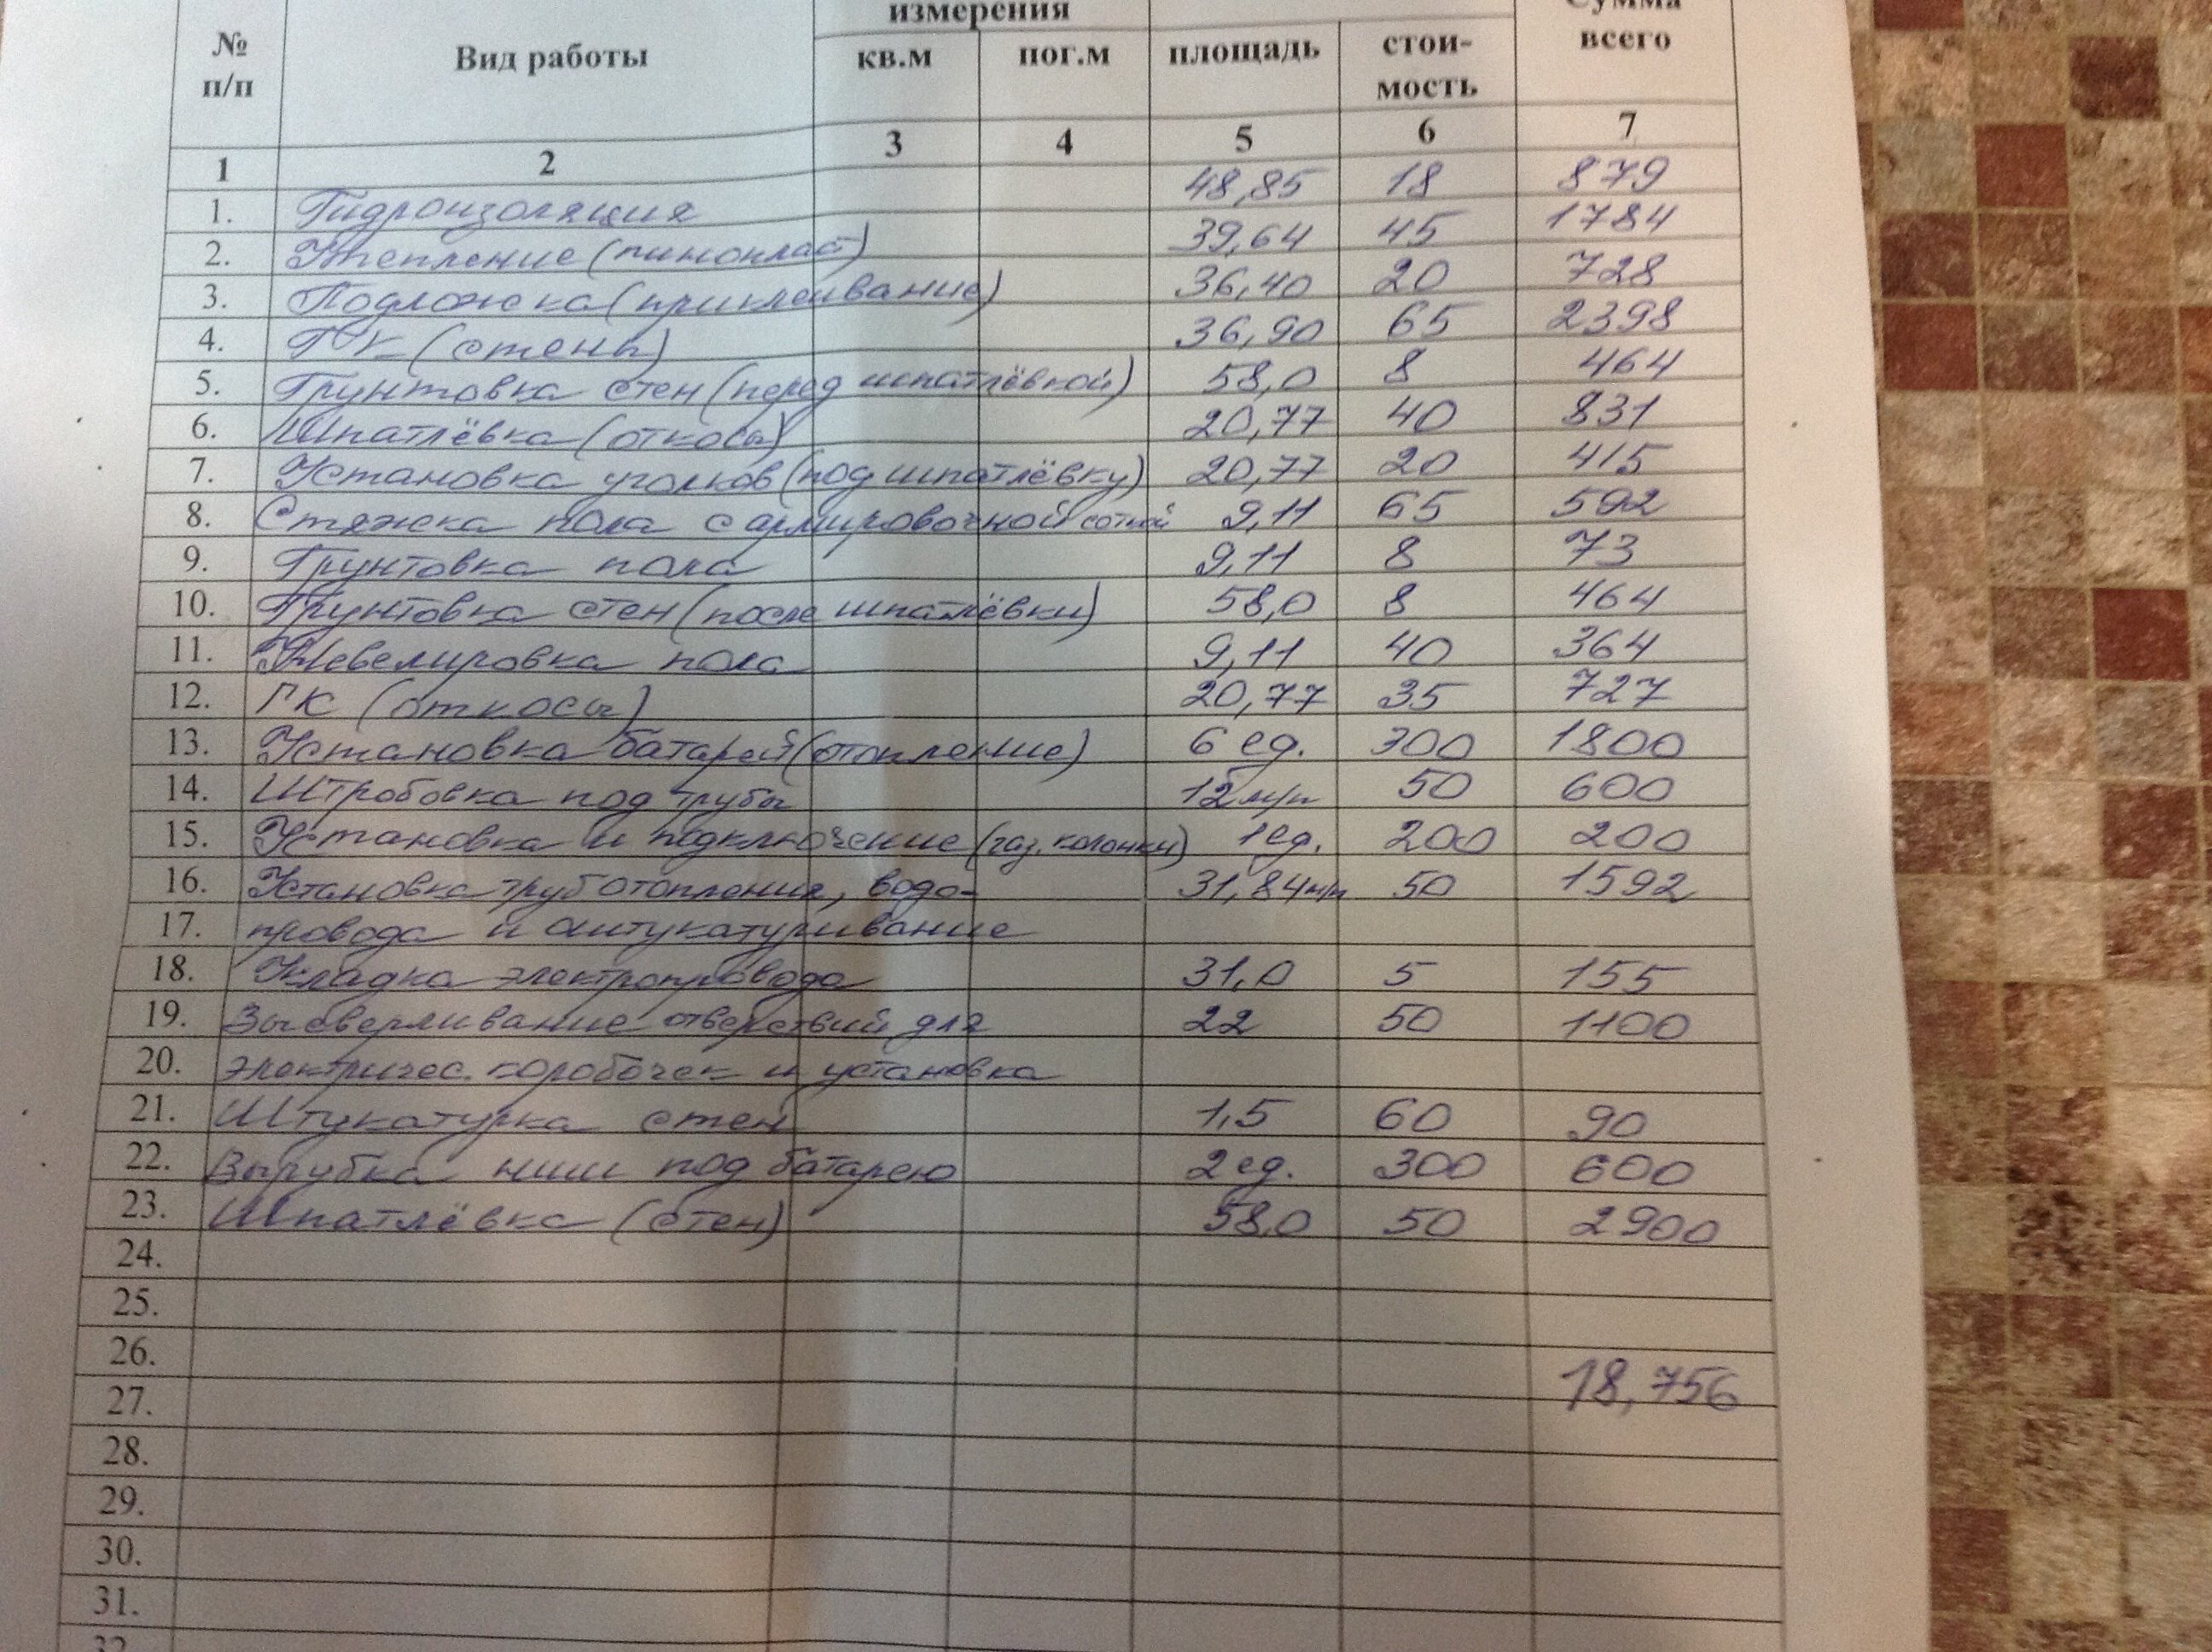 измерения Сумма
№ п/п Вид работы кв.м пог.м площадь стои-мость всего
1 2 3 4 5 6 7
1. Гидроизоляция 48,85 18 879
2. Утепление (пинопласт) 39,64 45 1784
3. Подложка (приклеивание) 36,40 20 728
4. ГК (стены) 36,90 65 2398
5. Грунтовка стен (перед шпатлёвкой) 58,0 8 464
6. Шпатлёвка (откосы) 20,77 40 831
7. Установка уголков (под шпатлёвку) 20,77 20 415
8. Стяжка пола с армировочной сеткой 9,11 65 592
9. Грунтовка пола 9,11 8 73
10. Грунтовка стен (после шпатлёвки) 58,0 8 464
11. Нивелировка пола 9,11 40 364
12. ГК (откосы) 20,77 35 727
13. Установка батарей (отопление) 6 ед. 300 1800
14. Штробовка под трубы 12 м/п 50 600
15. Установка и подключение (газ. колонки) 1 ед. 200 200
16. Установка труб отопления, водо- 31,84 м/п 50 1592
17. провода и оштукатуривание
18. Укладка электропровода 31,0 5 155
19. Высверливание отверствий для 22 50 1100
20. электричес. коробочек и установка
21. Штукатурка стен 1,5 60 90
22. Вырубка ниши под батарею 2 ед. 300 600
23. Шпатлёвка (стен) 58,0 50 2900
24.
25.
26.
27. 18,756
28.
29.
30.
31.
32.